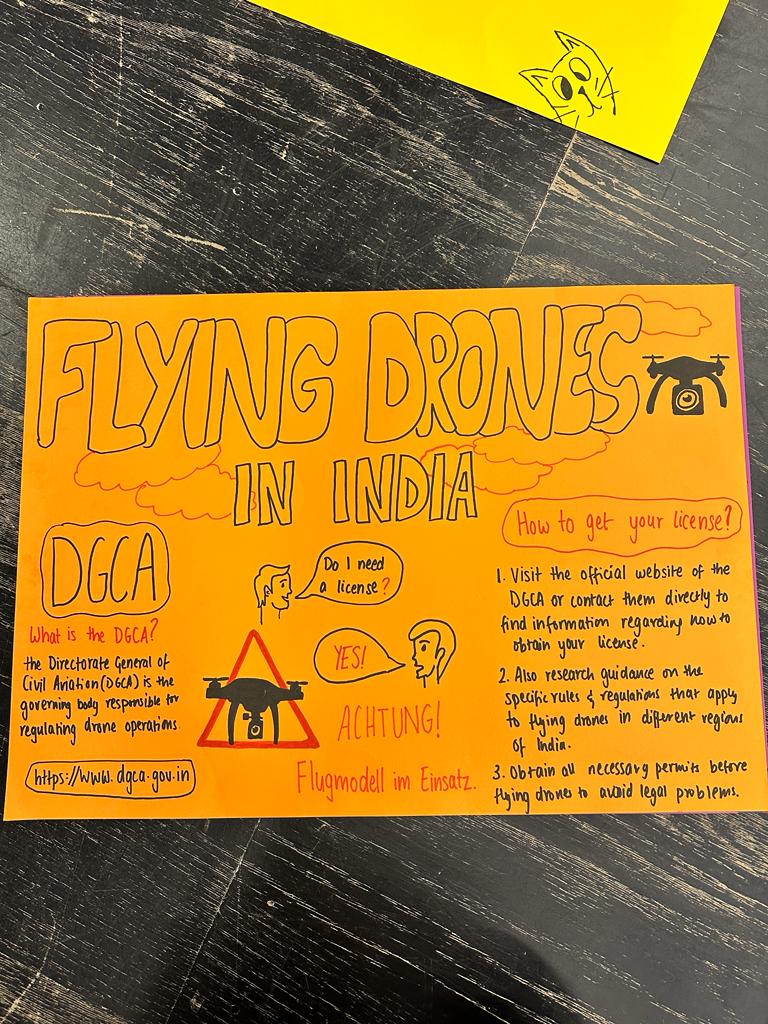 FLYING DRONES
IN INDIA
DGCA
What is the DGCA?
the Directorate General of
Civil Aviation (DGCA) is the
governing body responsible for
regulating drone operations.
https://www.dgca.gov.in
Do I need
a license?
YES!
ACHTUNG!
Flugmodell im Einsatz.
How to get your license?
1. Visit the official website of the
DGCA or contact them directly to
find information regarding how to
obtain your license.
2. Also research guidance on the
specific rules & regulations that apply
to flying drones in different regions
of India.
3. Obtain all necessary permits before
flying drones to avoid legal problems.